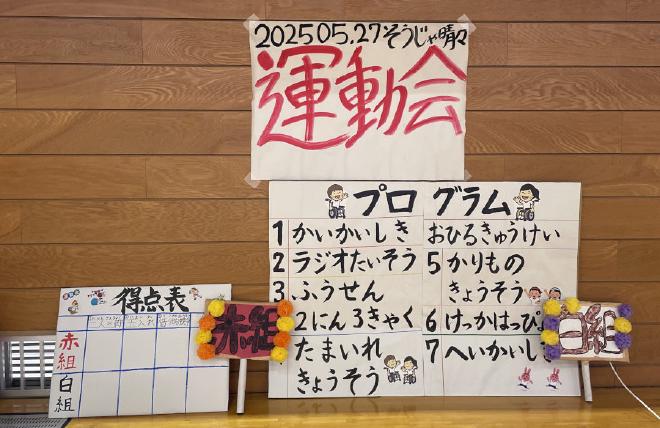 2025 05.27 そうじゃ晴々
運動会
プログラム
1 かいかいしき
2 ラジオたいそう
3 ふうせん
2にん3きゃく
たまいれ
きょうそう
おひるきゅうけい
5 かりもの
きょうそう
6 けっかはっぴょ
7 へいかいしき
得点表
玉入れ
赤組
白組
赤組
白組